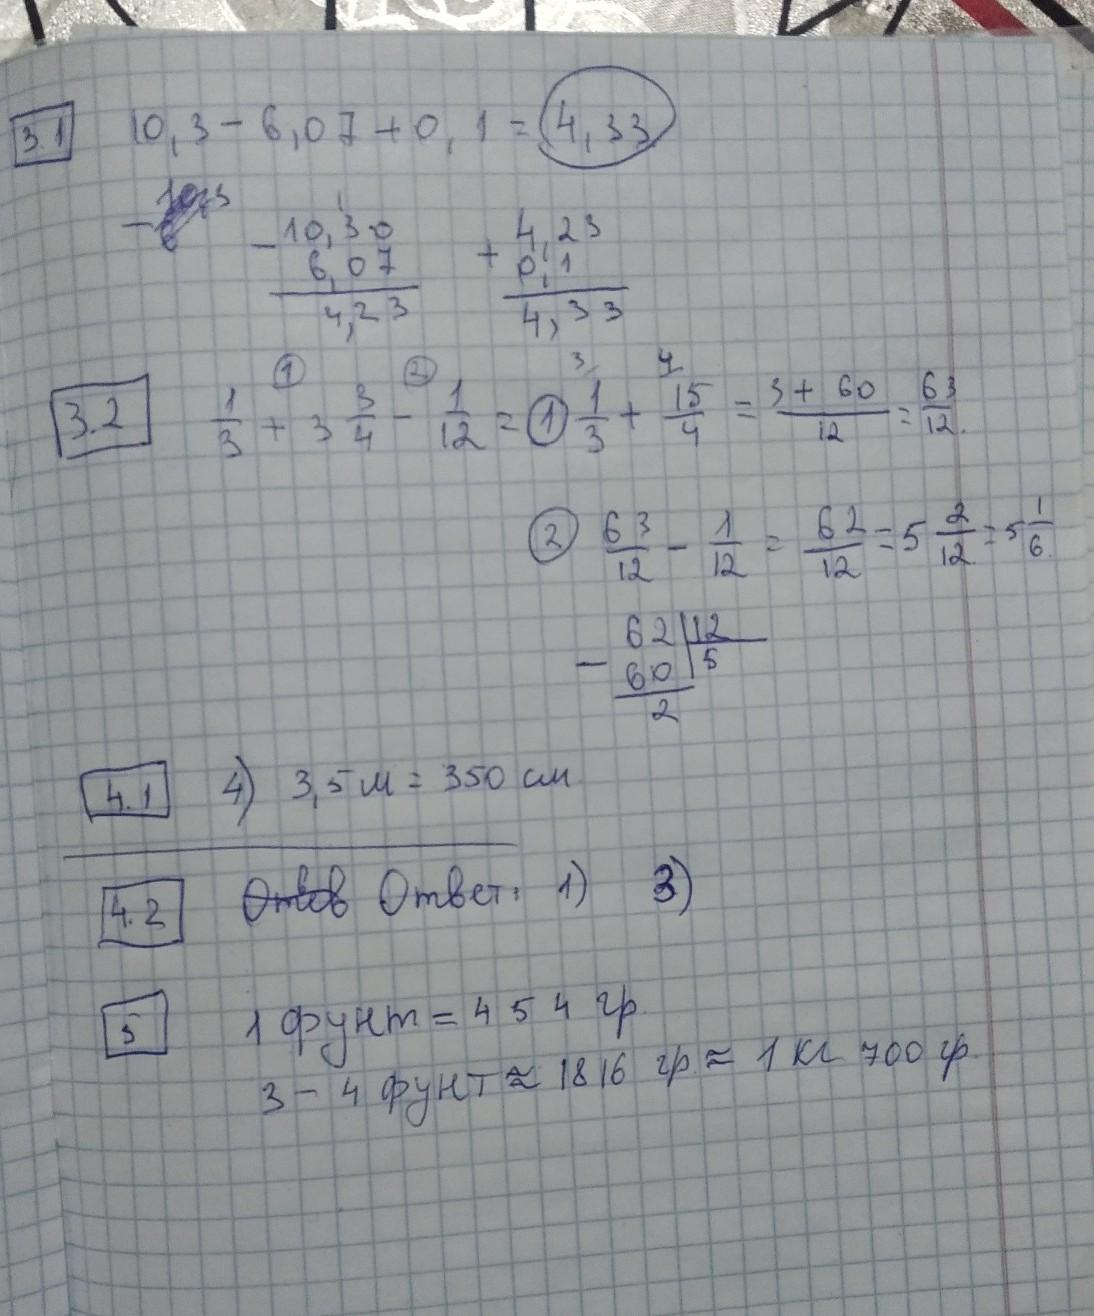 3.1 10,3 - 6,07 + 0,1 = 4,33
- 10,30 + 4,23
6,07 0,1
4,23 4,33
3.2 1/3 + 3 3/4 - 1/12 = ① 1/3 + 15/4 = (3 + 60)/12 = 63/12.
② 63/12 - 1/12 = 62/12 = 5 2/12 = 5 1/6.
- 62 | 12
60 | 5
2
4.1 4) 3,5 м = 350 см
4.2 Ответ: 1) 3)
5 1 фунт = 454 гр.
3 - 4 фунт ≈ 1816 гр. ≈ 1 кг 700 гр.